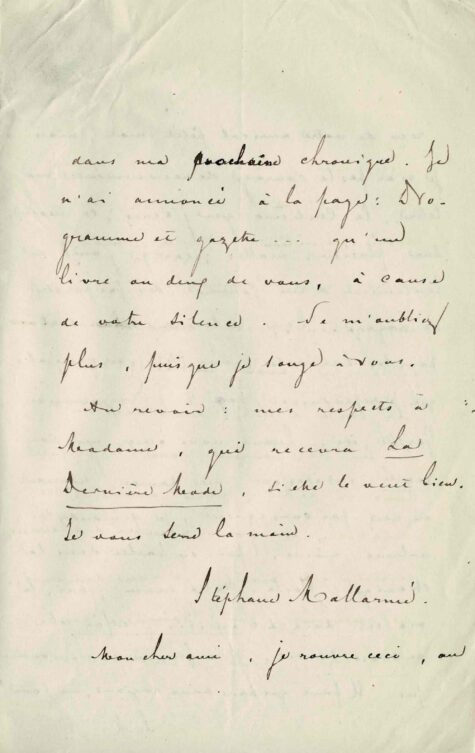 dans ma prochaine chronique. Je
n'ai annoncé à la page: Pro-
gramme et gazette ... qu'un
livre ou deux de vous, à cause
de votre silence. Ne m'oubliez
plus, puisque je songe à vous.
Au revoir: mes respects à
Madame, qui recevra La
Dernière Mode, si elle le veut bien.
Je vous serre la main.
Stéphane Mallarmé.
Mon cher ami, je rouvre ceci, au